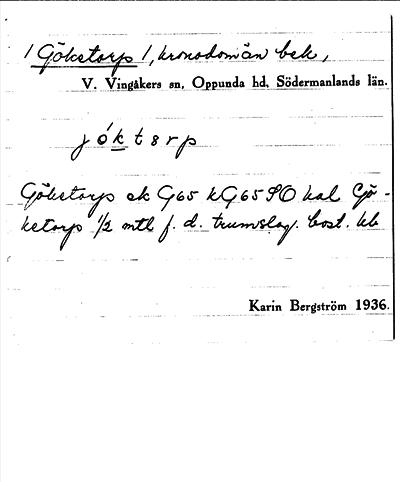 / Gökstorp /, kronodomän bek,
V. Vingåkers sn, Oppunda hd, Södermanlands län.
Göketorp ek G65 kG65 SO kal Gö-
ketorp 1/2 mtl f. d. trumslag. bost. kb
Karin Bergström 1936.